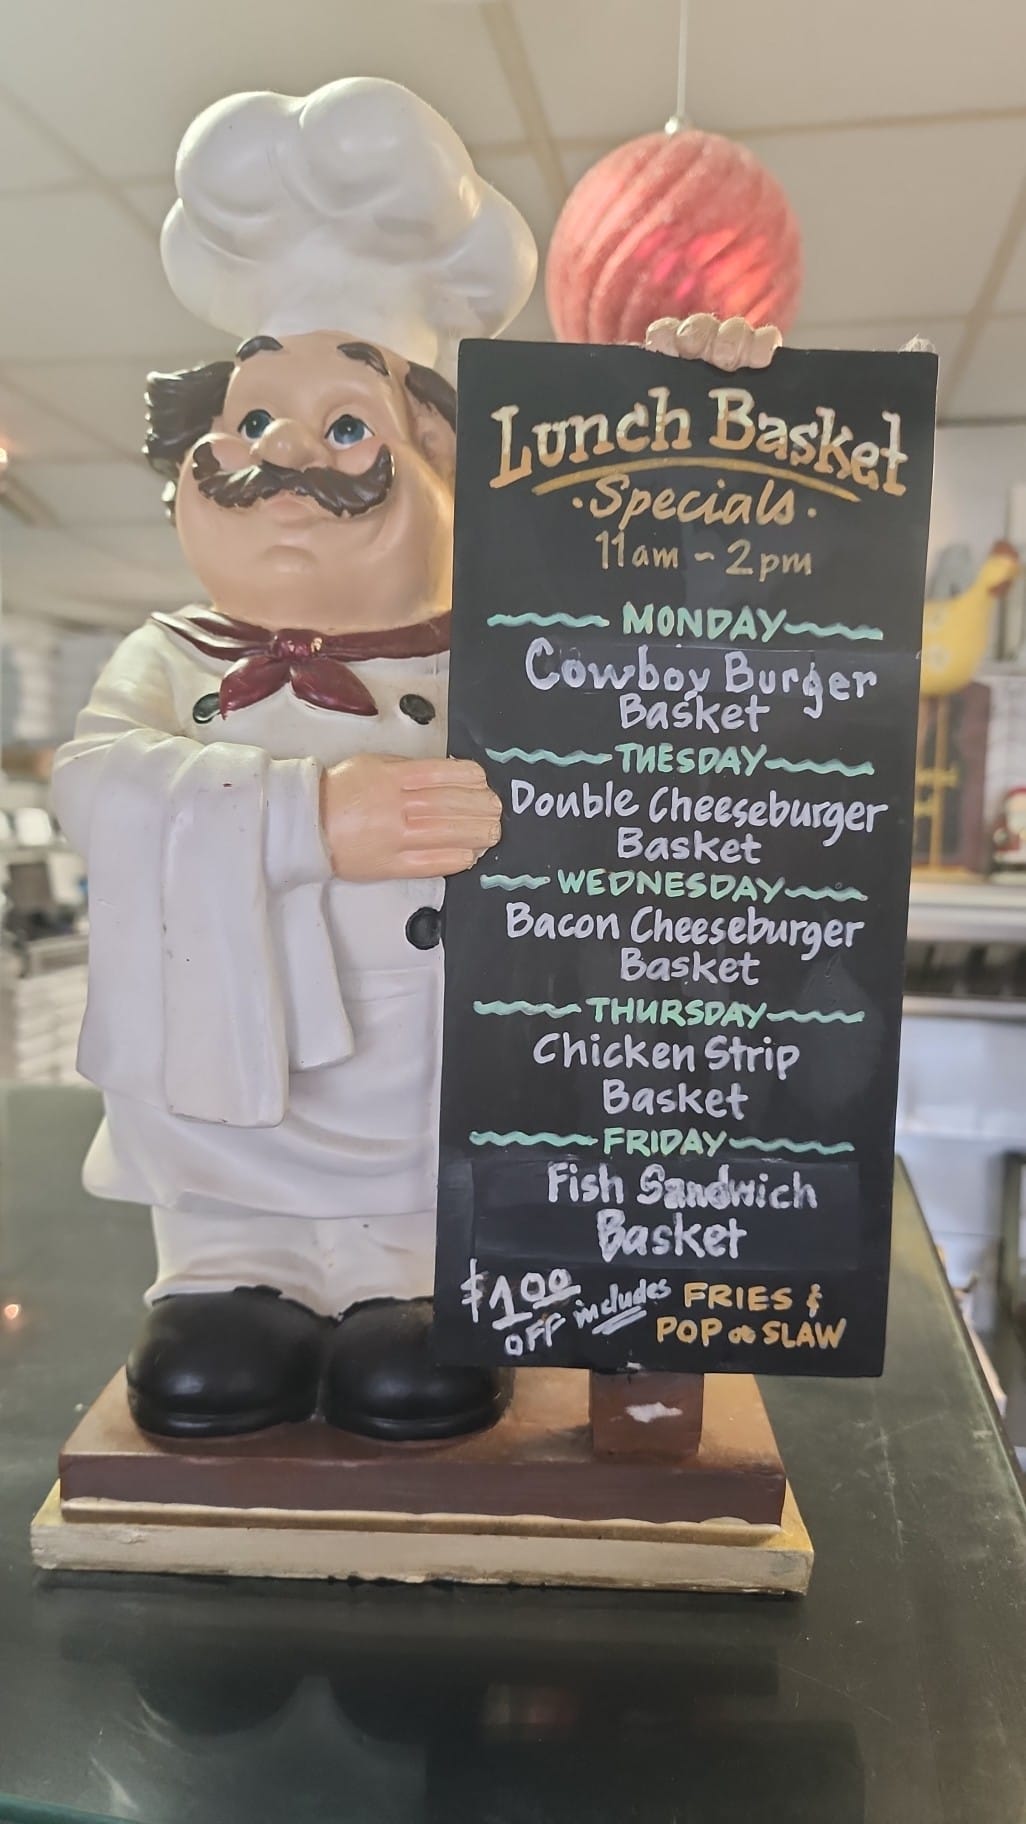 Lunch Basket
Specials
11am ~ 2pm
MONDAY
Cowboy Burger
Basket
TUESDAY
Double Cheeseburger
Basket
WEDNESDAY
Bacon Cheeseburger
Basket
THURSDAY
Chicken Strip
Basket
FRIDAY
Fish Sandwich
Basket
$1.00 OFF includes FRIES &
POP or SLAW